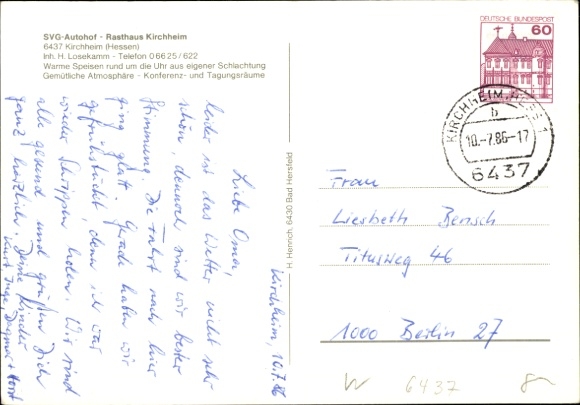 SVG-Autohof - Rasthaus Kirchheim
6437 Kirchheim (Hessen)
Inh. H. Losekamm - Telefon 0 66 25 / 622
Warme Speisen rund um die Uhr aus eigener Schlachtung
Gemütliche Atmosphäre - Konferenz- und Tagungsräume
DEUTSCHE BUNDESPOST
60
KIRCHHEIM, HESS 1
b
10.-7.86-17
6437
H. Henrich, 6430 Bad Hersfeld
Kirchheim, 10.7.86
Liebe Oma,
leider ist das Wetter nicht sehr
schön, dennoch sind wir bester
Stimmung. Die Fahrt nach hier
ging glatt. Gerade haben wir
gefrühstückt, denn ich war
wieder Schrippen holen. Wir sind
alle gesund und grüßen Dich
ganz herzlich. Deine Kinder
Kurt, Inge, Dagmar + Horst
Frau
Liesbeth Bensch
Titusweg 46
1000 Berlin 27
W 6437 8-